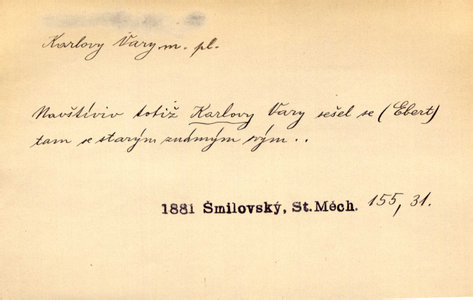 Karlovy Vary m. pl.
Navštíviv totiž Karlovy Vary sešel se (Ebert)
tam se starým známým svým..
1881 Šmilovský, St. Měch. 155, 31.